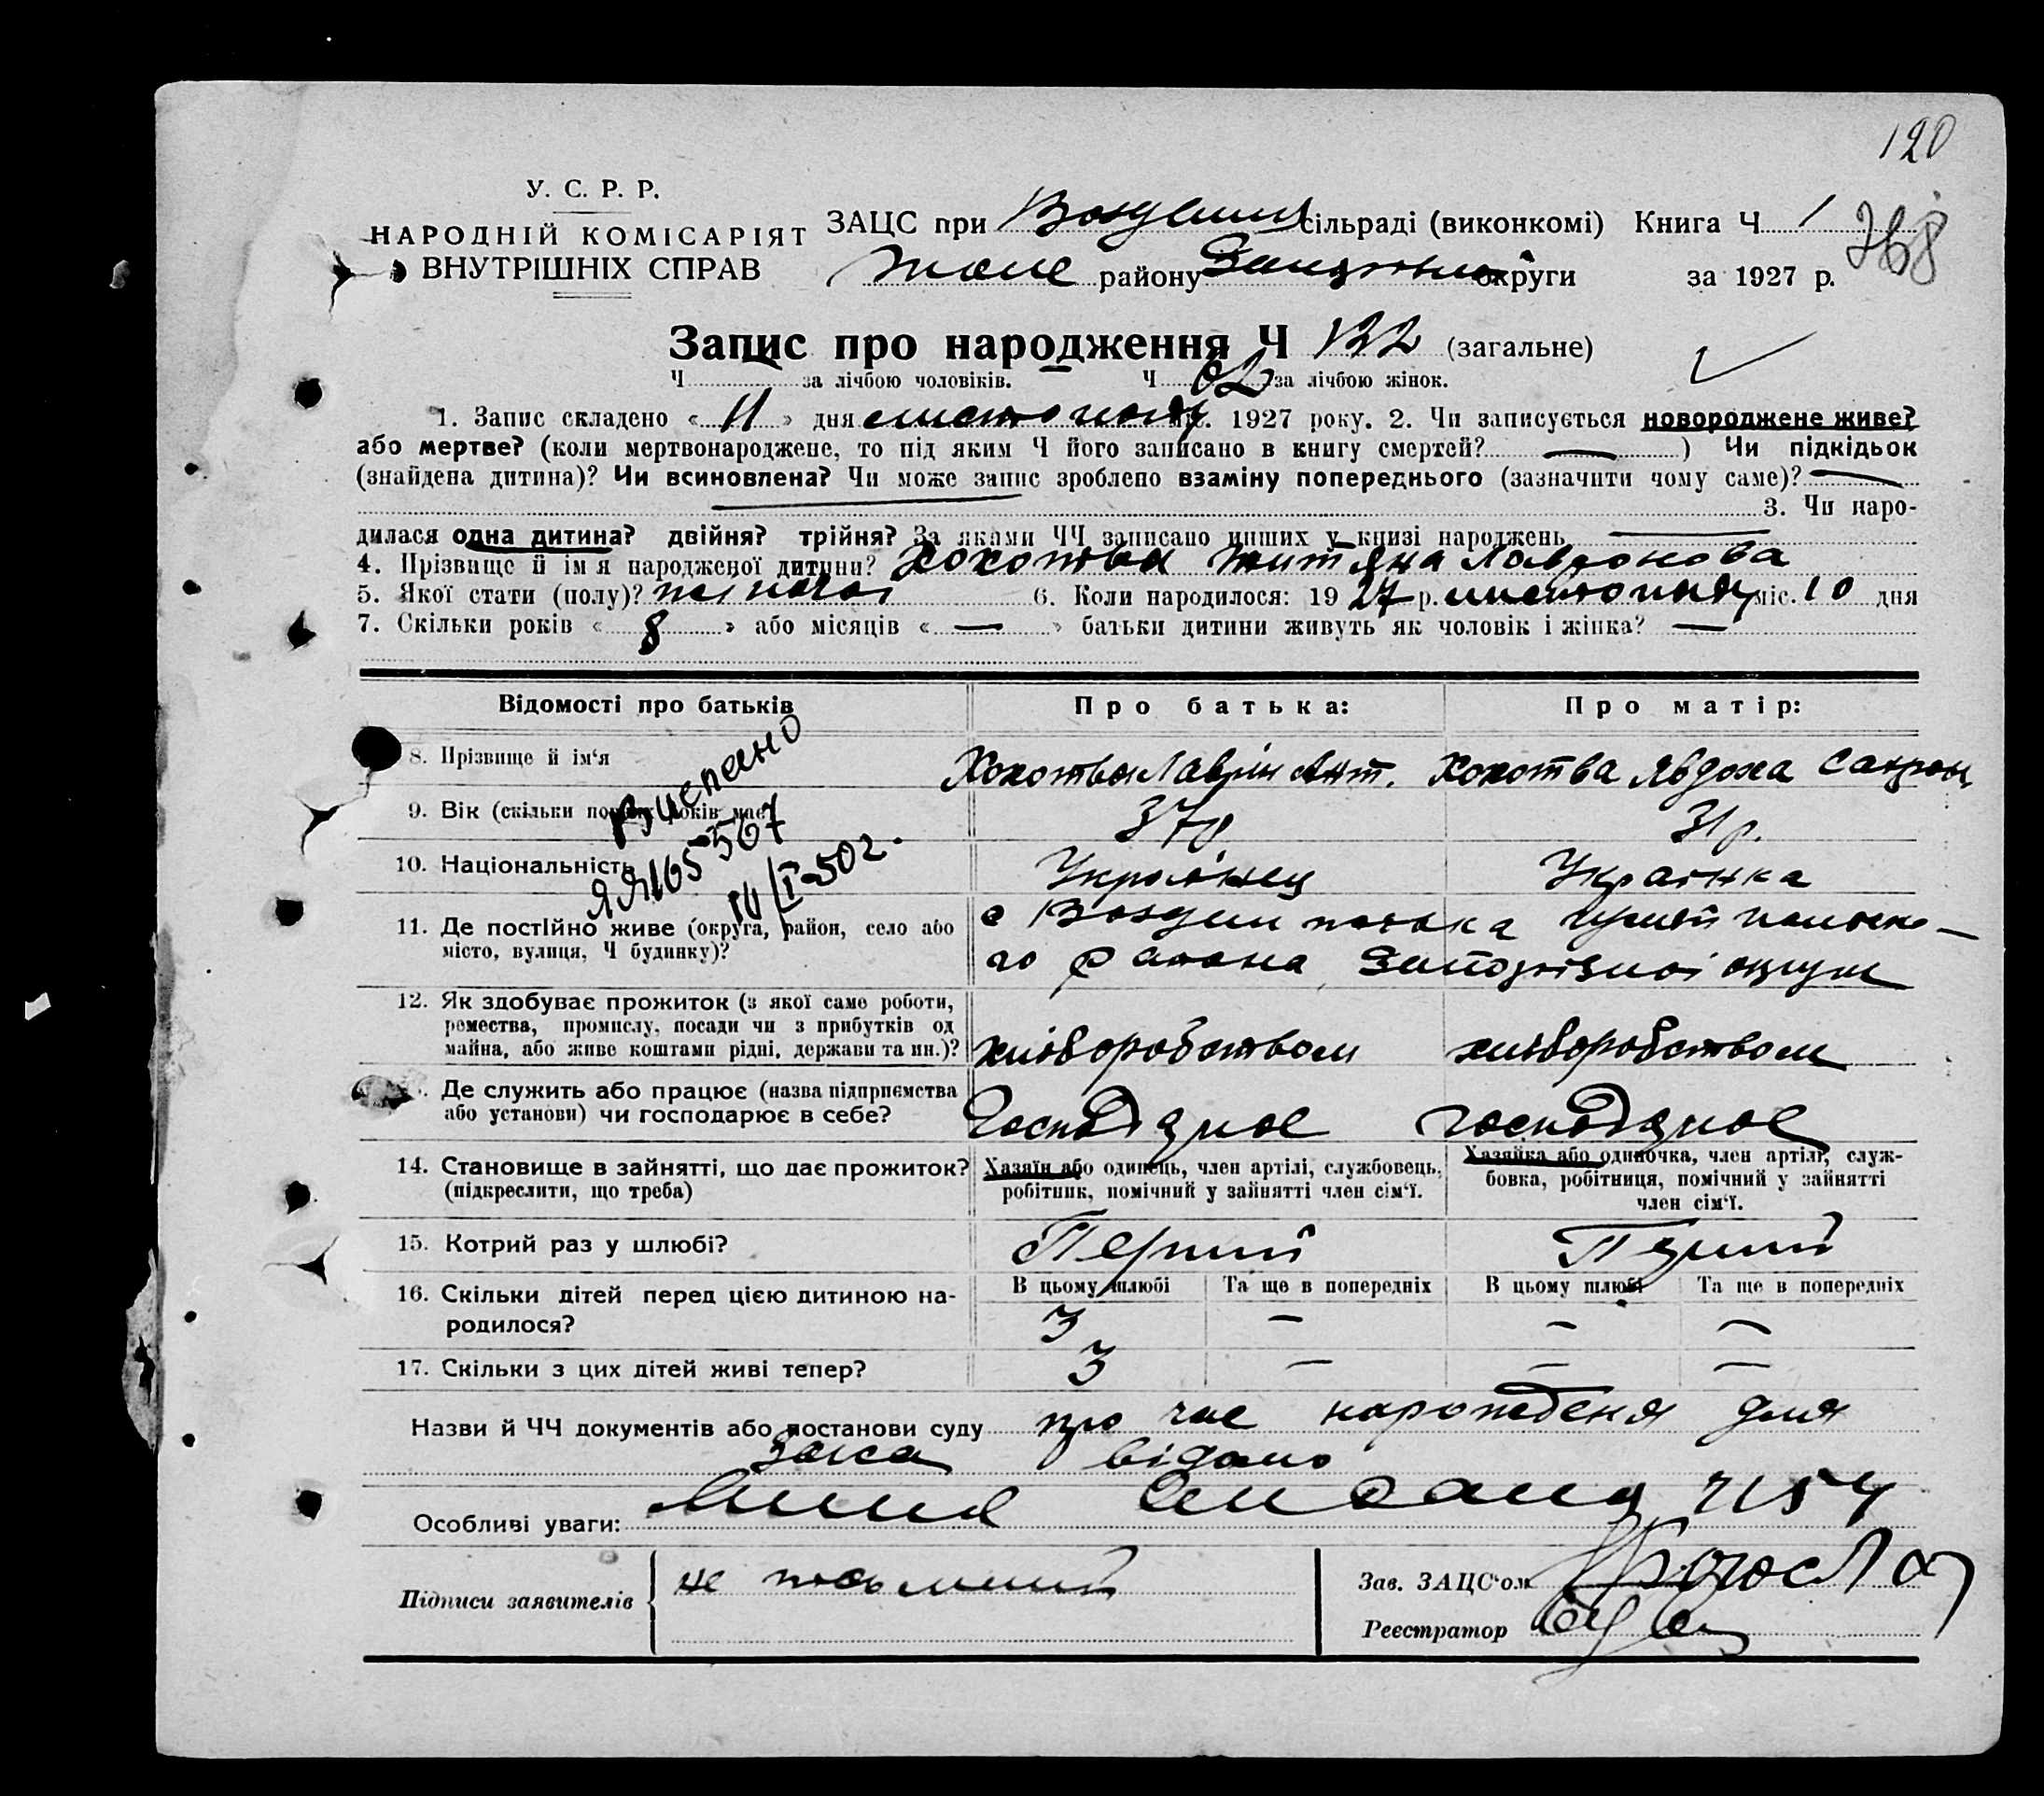 120
У. С. Р. Р.
НАРОДНІЙ КОМІСАРІЯТ
ВНУТРІШНІХ СПРАВ
ЗАЦС при сільраді (виконкомі) Книга Ч 1
району округи за 1927 р.
268
Запис про народження Ч 132 (загальне)
Ч за лічбою чоловіків. Ч 62 за лічбою жінок.
1. Запис складено «11» дня листопаду міс. 1927 року. 2. Чи записується новороджене живе?
або мертве? (коли мертвонароджене, то під яким Ч його записано в книгу смертей? — ) Чи підкідьок
(знайдена дитина)? Чи всиновлена? Чи може запис зроблено взаміну попереднього (зазначити чому саме)? —
3. Чи наро-
дилася одна дитина? двійня? трійня? За якими ЧЧ записано инших у книзі народжень —
4. Прізвище й ім'я народженої дитини? Хохотва Титяна Лавронова
5. Якої стати (полу)? жіноча 6. Коли народилося: 1927 р. листопаду міс. 10 дня
7. Скільки років «8» або місяців «—» батьки дитини живуть як чоловік і жінка? —
Відомості про батьків Про батька: Про матір:
8. Прізвище й ім'я Хохотва Лаврін Ант. Хохотва Явдоха Сакрон
Виспано
9. Вік (скільки повних років має) 37р. 31р.
ЯЯ 165567
10. Національність Українец Українка
10/I-50г.
11. Де постійно живе (округа, район, село або
місто, вулиця, Ч будинку)?
го района Запорізької округи
12. Як здобуває прожиток (з якої саме роботи,
ремества, промислу, посади чи з прибутків од
майна, або живе коштами рідні, держави та ин.)? хліборобством хліборобством
Де служить або працює (назва підприємства
або установи) чи господарює в себе? Господарює господарює
14. Становище в зайнятті, що дає прожиток?
(підкреслити, що треба)
Хазяїн або одинець, член артілі, службовець,
робітник, помічний у зайнятті член сім'ї.
Хазяйка або одиночка, член артілі, служ-
бовка, робітниця, помічний у зайнятті
член сім'ї.
15. Котрий раз у шлюбі? Перший Перший
В цьому шлюбі Та ще в попередніх В цьому шлюбі Та ще в попередніх
16. Скільки дітей перед цією дитиною на-
родилося? 3 — — —
17. Скільки з цих дітей живі тепер? 3 — — —
Назви й ЧЧ документів або постанови суду про час народженя для
відомо
Особливі уваги:
Підписи заявителів не письменний
Зав. ЗАЦС'ом
Реєстратор